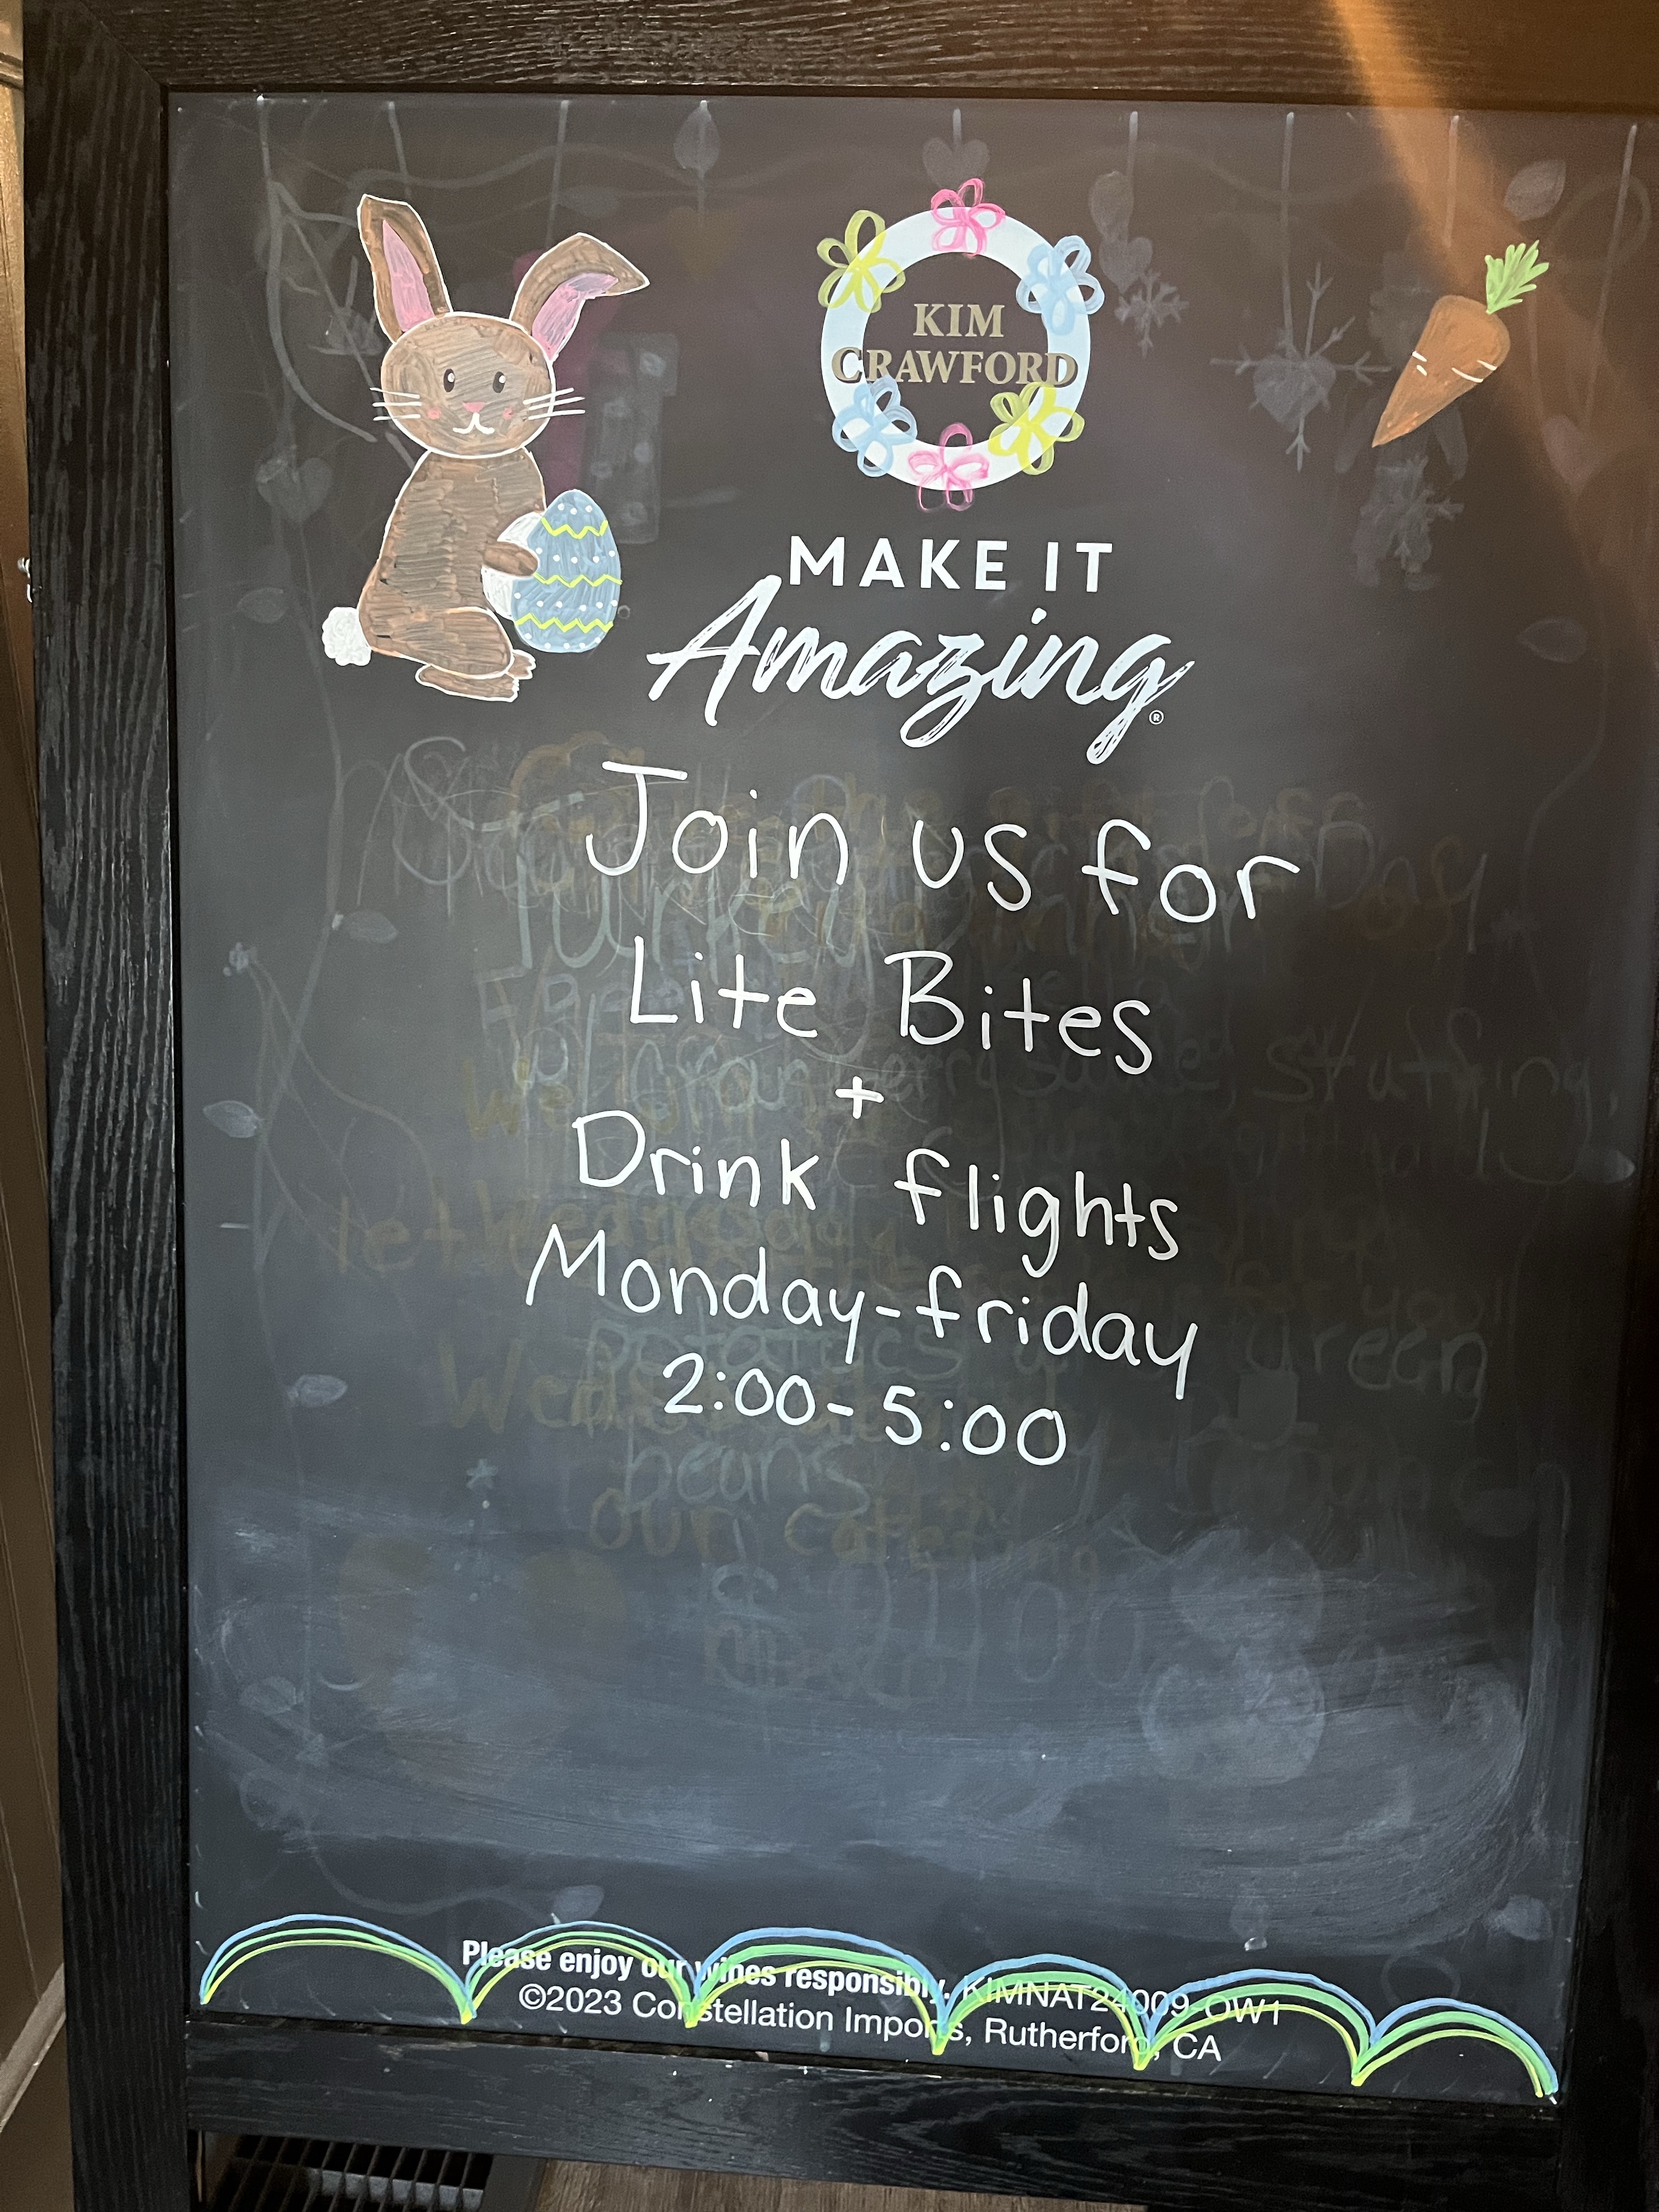 KIM
CRAWFORD
MAKE IT
Amazing®
Join us for
Lite Bites
+
Drink flights
Monday-friday
2:00-5:00
Please enjoy our wines responsibly. KIMNAT24009-OW1
©2023 Constellation Imports, Rutherford, CA